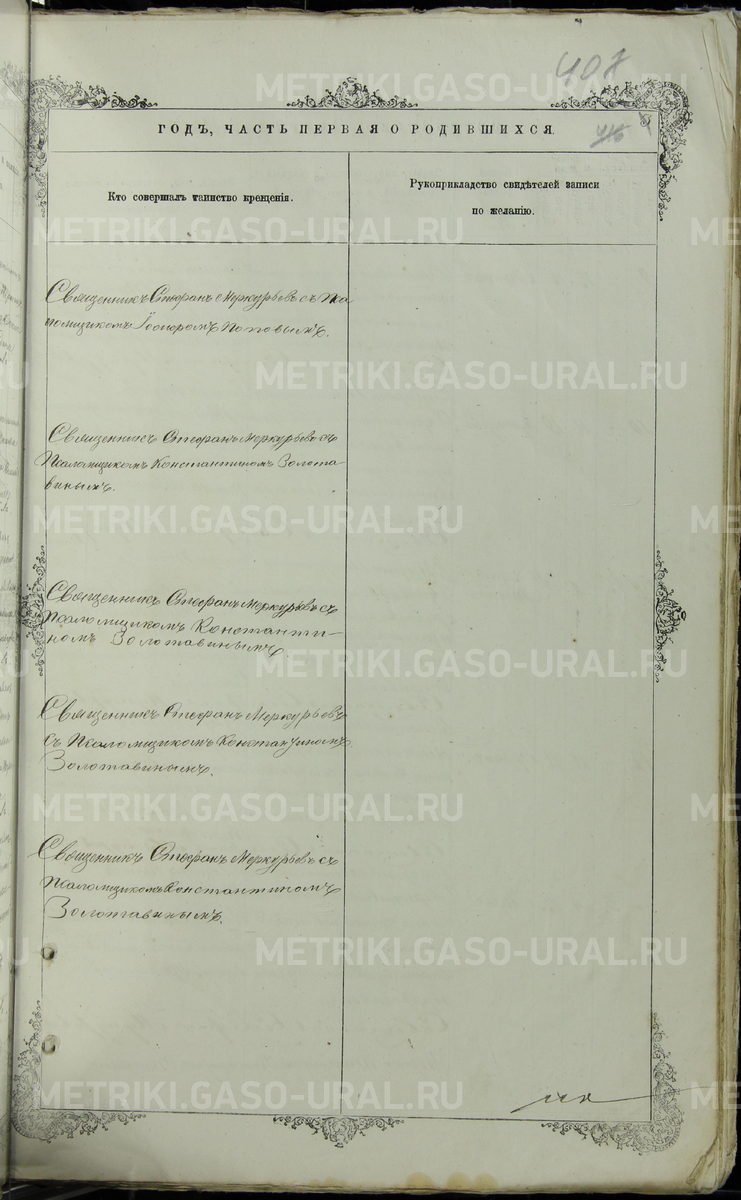 407
ГОДЪ, ЧАСТЬ ПЕРВАЯ О РОДИВШИХСЯ.
Кто совершалъ таинство крещенія.
Рукоприкладство свидѣтелей записи
по желанію.
Священникъ Стефанъ Меркурьевъ съ Пса
ломщикомъ Ѳеодоромъ Поповымъ.
Священникъ Стефанъ Меркурьевъ съ
Псаломщикомъ Константиномъ Золота-
винымъ.
Священникъ Стефанъ Меркурьевъ съ
Псаломщикомъ Константи-
номъ Золотавинымъ.
Священникъ Стефанъ Меркурьевъ
съ Псаломщикомъ Константиномъ
Золотавинымъ.
Священникъ Стефанъ Меркурьевъ съ
Псаломщикомъ Константиномъ
Золотавинымъ.
METRIKI.GASO-URAL.RU